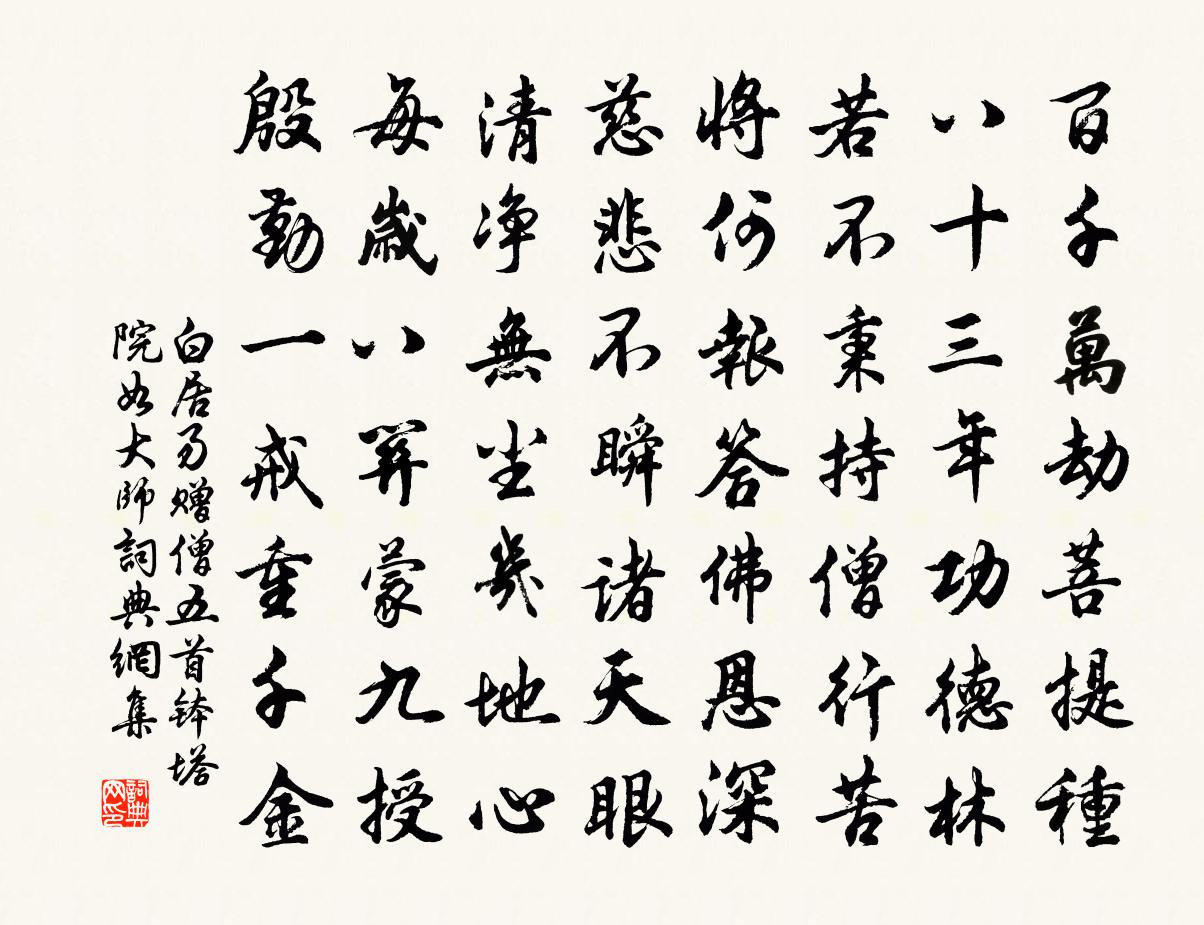 百千萬劫菩提種
八十三年功德林
若不秉持僧行苦
將何報答佛恩深
慈悲不瞬諸天眼
清净無塵幾地心
每歲八關蒙九授
殷勤一戒重千金
白居易贈僧五首鉢塔
院如大師詞典網集
詞典
网印